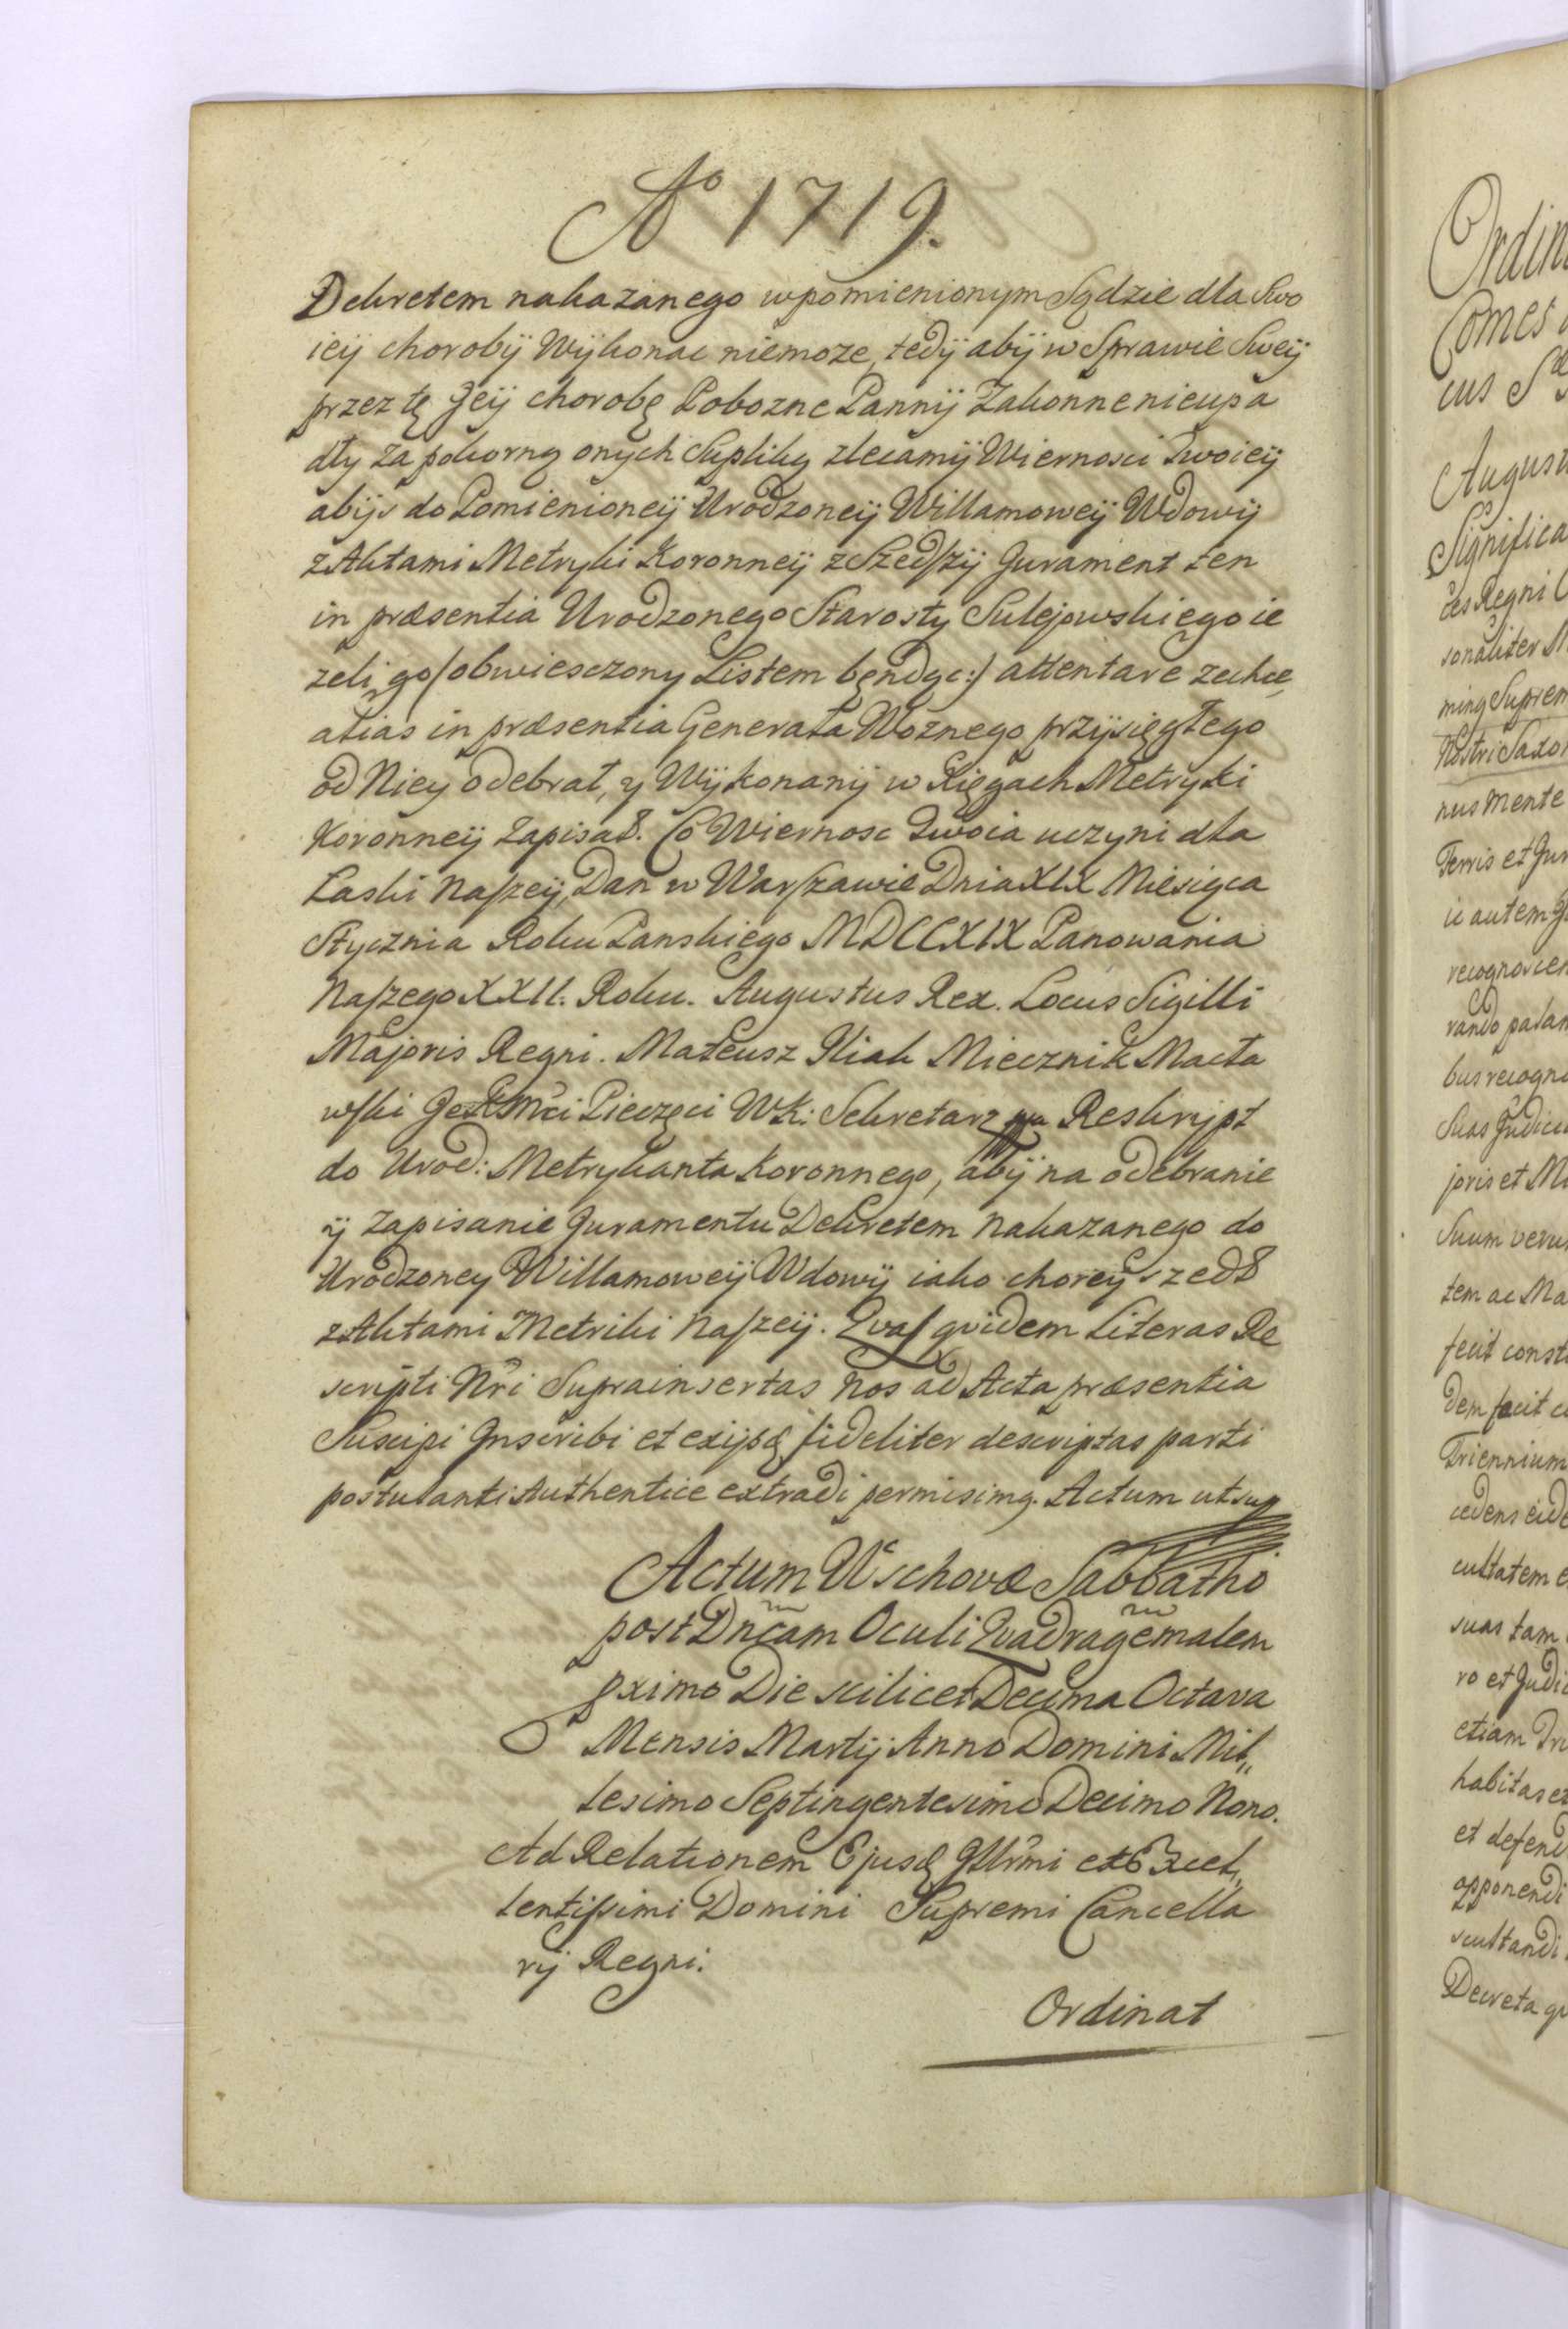 Ao 1719.
Dekretem nakazanego wpomienionym Sądzie dla Swo
ieÿ chorobÿ Wÿkonac niemoze, tedÿ abÿ w Sprawie Sweÿ
przez tę Jeÿ chorobę Pobozne Pannÿ Zakonne nieupa
dły za pokorną onych Supliką zlecamÿ Wiernosci Twoieÿ
abÿs do Pomienioneÿ Urodzoneÿ Willamoweÿ Wdowÿ
z Aktami Metryki Koronneÿ zSzedszÿ Jurament ten
in præsentia Urodzonego Starosty Sulejowskiego ie
zeli go (obwiesczony Listem będąc:) attentare zechce,
alias in præsentia Generała Woznego przÿsięgłego
od Niey odebrał, y Wÿkonanÿ w Xięgach Metryki
Koronneÿ Zapisał. Co Wiernosc Twoia uczyni dla
Łaski Naszeÿ, Dan w Warszawie Dnia XIX Miesiąca
Stycznia Roku Panskiego MDCCXIX Panowania
Naszego XXII. Roku. Augustus Rex. Locus Sigilli
Majoris Regni. Mateusz Kiak Miecznik Macla
wski JeKMci Pieczęci WK: Sekretarz Reskrypt
do Urod: Metrykanta Koronnego, abÿ na odebranie
ÿ Zapisanie Juramentu Dekretem Nakazanego do
Urodzoney Willamoweÿ Wdowÿ iako choreÿ szedł
z Aktami Metriki Naszeÿ. Qvas qvidem Literas Re
scripti Nri Suprainsertas Nos ad Acta præsentia
Suscipi Inscribi et exijsq fideliter descriptas parti
postulanti Authentice extradi permisimq. Actum ut sup
Actum Wschovæ Sabbatho
post Dncam Oculi Qvadragemalem
pximo Die scilicet Decima Octava
Mensis Martij Anno Domini Mil„
lesimo Septingentesimo Decimo Nono.
Ad Relationem Ejusd Illrmi et Excel„
lentissimi Domini Supremi Cancella
rij Regni.
Ordinat
Ordin
Comes
cus S
August
Significa
ces Regni
sonaliter
ming Suprem
Nostri Saxo
nus mente
Terris et Jur
ic autem
recognoscen
rando palam
bus recogno
Suas Judici
joris et Mi
Suum veru
tem ac Ma
fecit const
dem facit
Triennium
cedens eid
cultatem e
suas tam
ro et Judi
etiam Tri
habitas et
et defend
opponendi
scultandi
Decreta